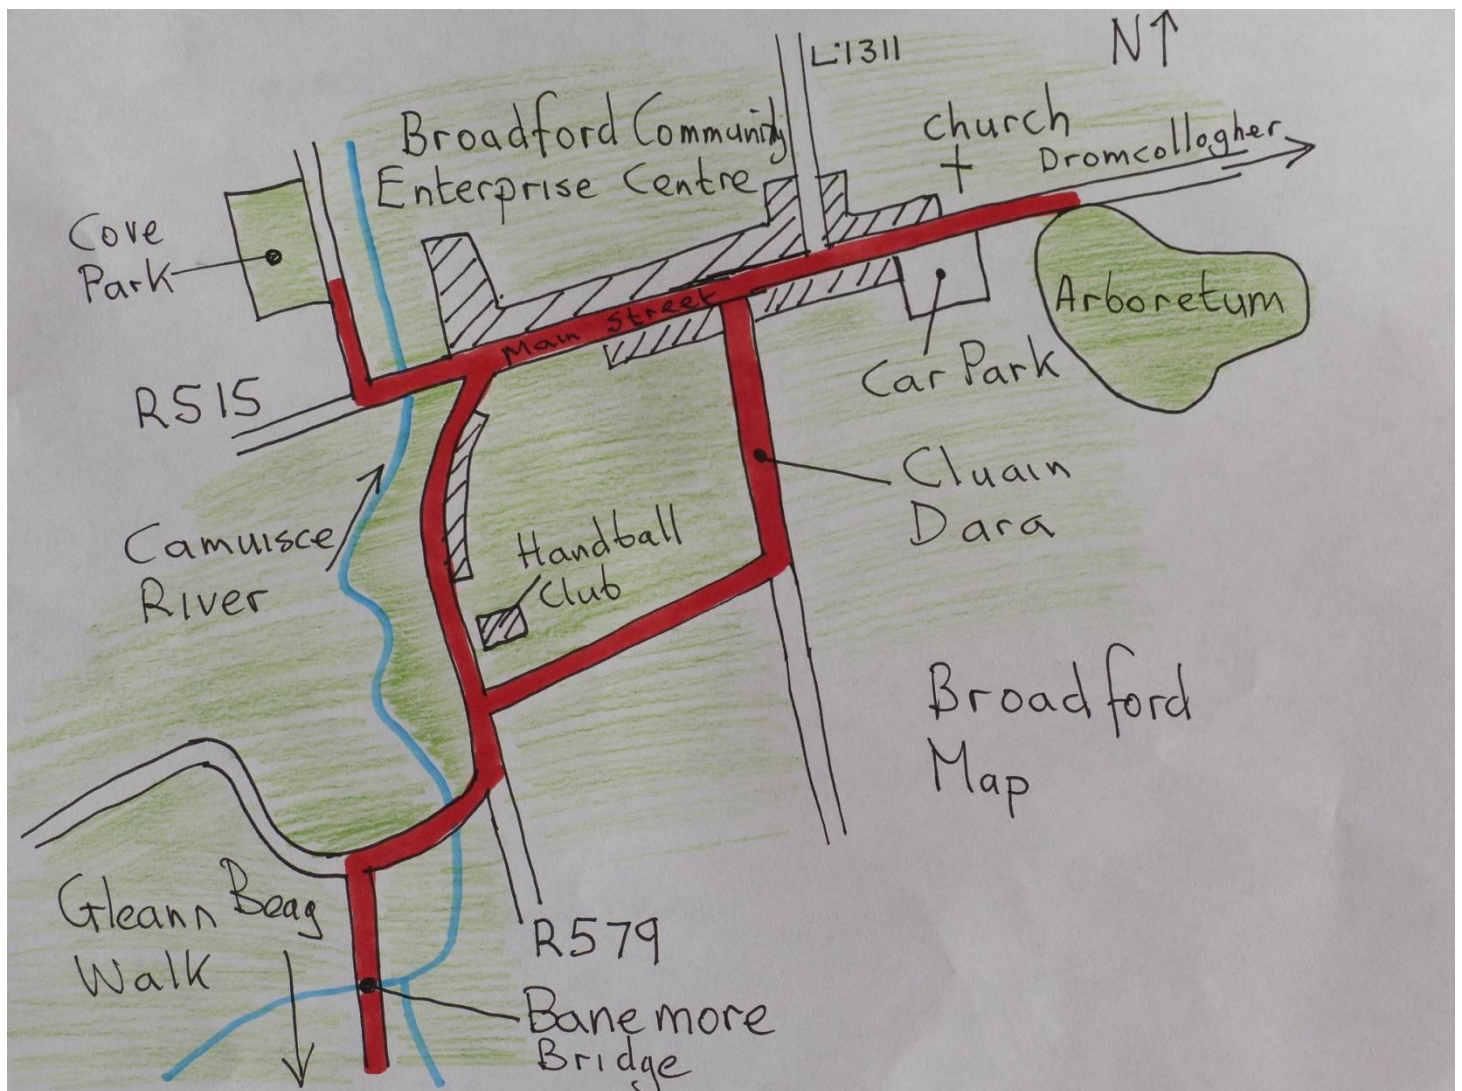 N↑
L-1311
Broadford Community
Enterprise Centre
Church
Dromcollogher
Cove
Park
Main Street
Arboretum
Car Park
R515
Cluain
Dara
Camuisce
River
Handball
Club
Broadford
Map
Gleann Beag
Walk
R579
Banemore
Bridge